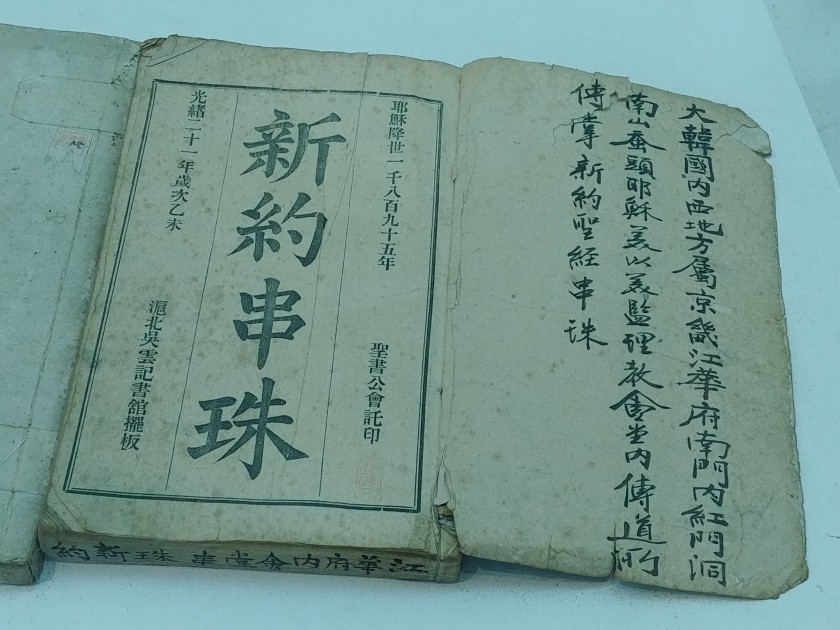 大韓國內西地方屬京畿江華府南門內紅門洞
南山蚕頭耶穌美以美監理教會堂內傳道所
傳掌新約聖経串珠
耶穌降世一千八百九十五年
聖書公會託印
新約串珠
光緒二十一年歲次乙未
滬北吳雲記書舘擺板
江華府內會堂串珠新約